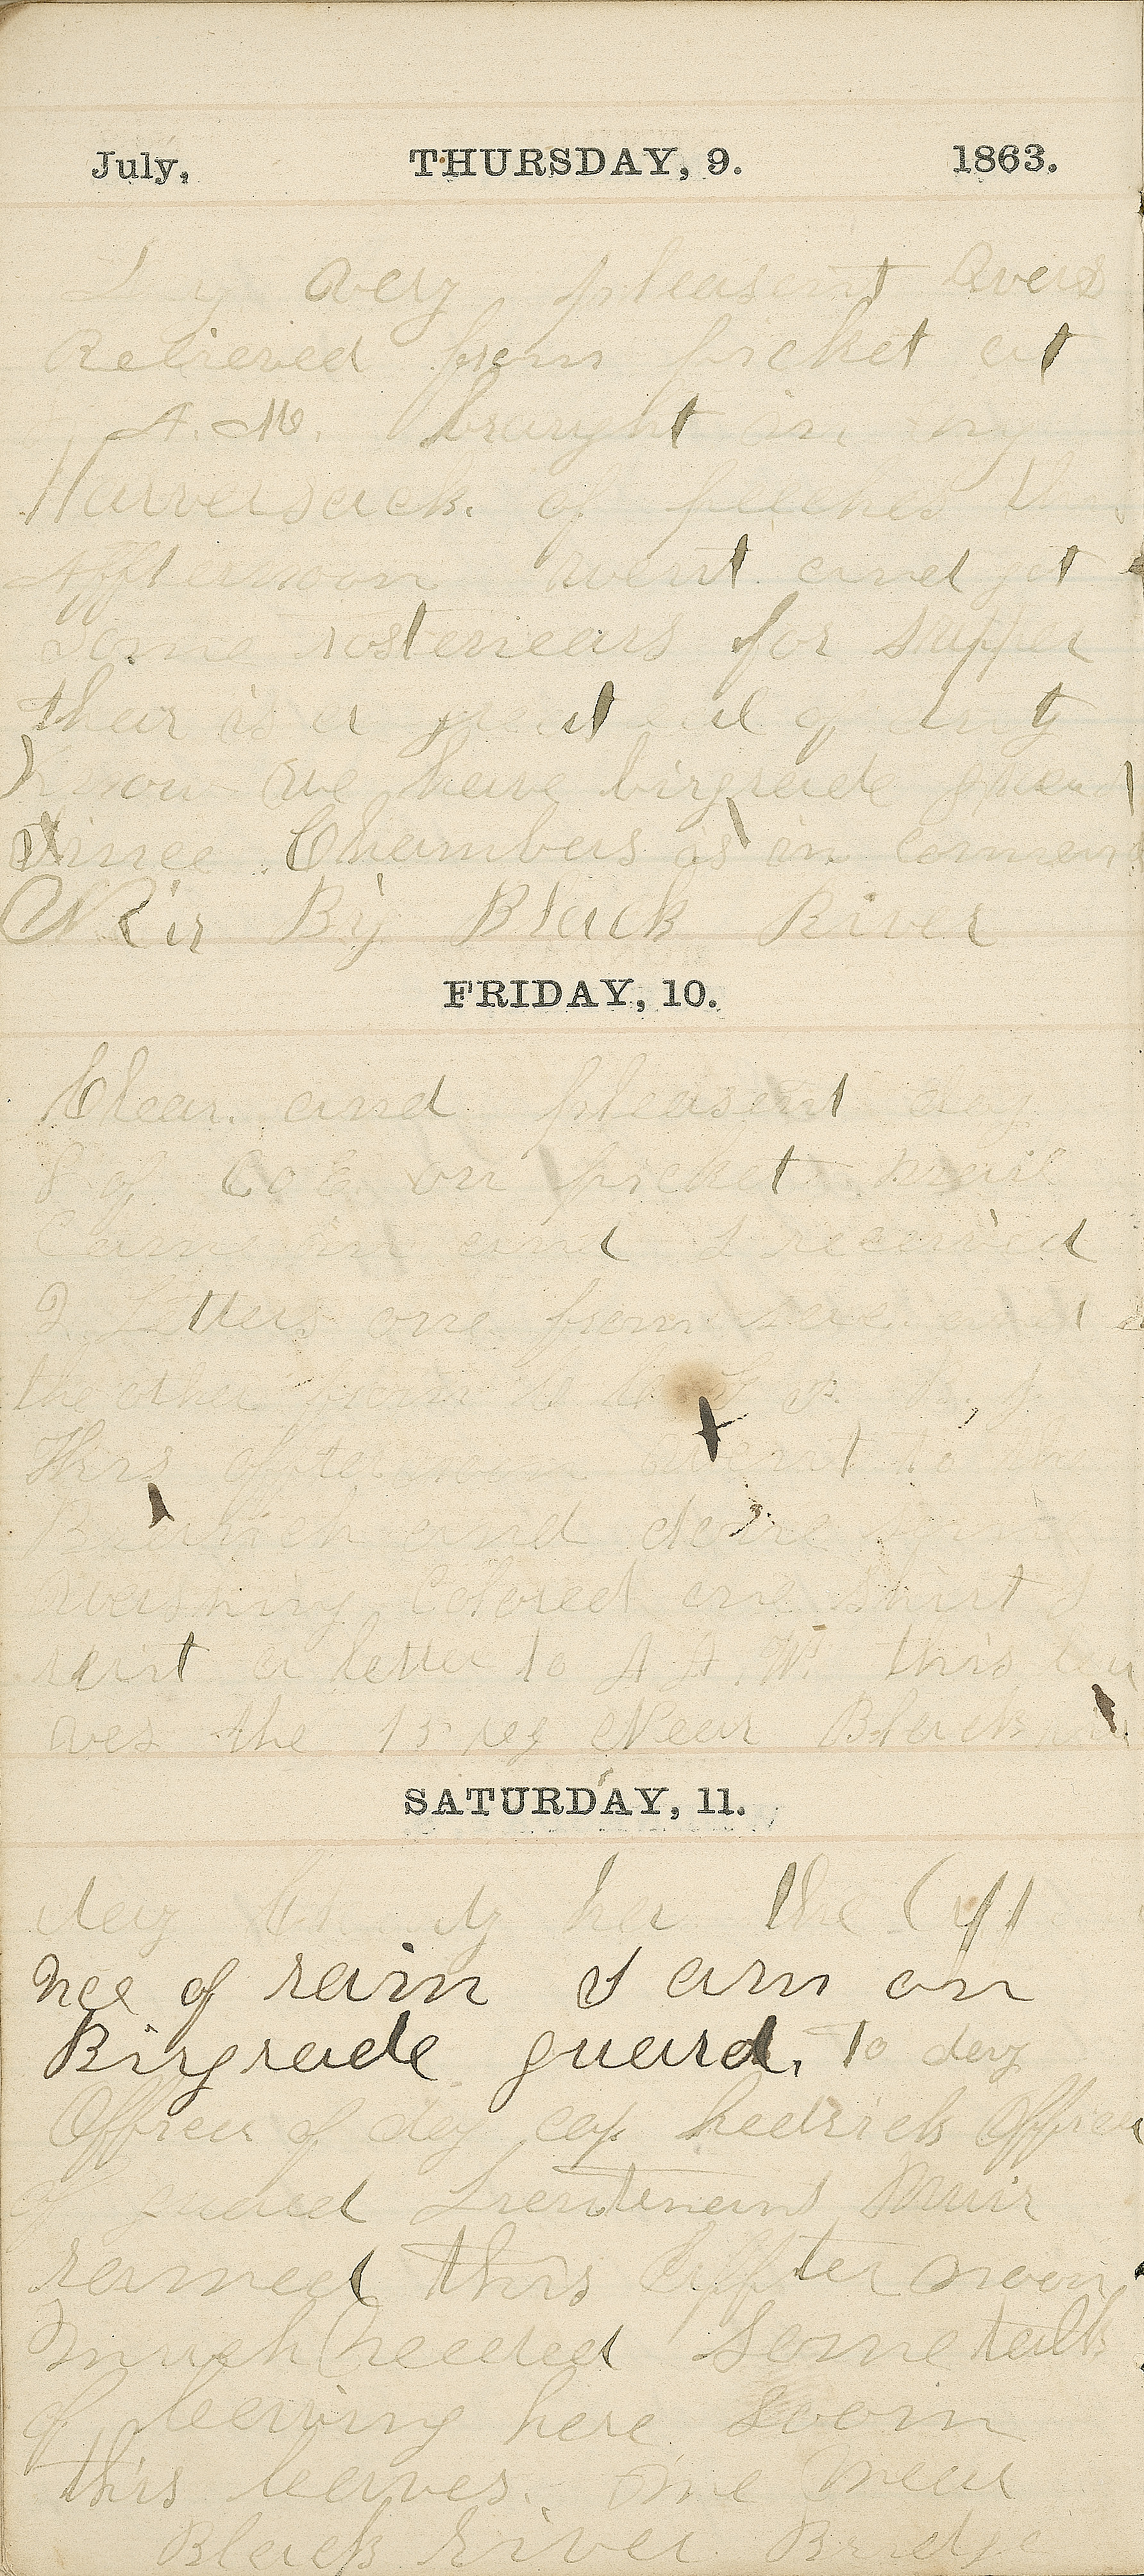 July, THURSDAY, 9. 1863.
very pleasent was
Relieved from picket at
A.M. braught in my
Haversack of peeches this
Affternoon went and got
Some rosteniears for supper
thear is a great deal of duty
know we have birgrade guard
Since Chambers is in commend
Near By Black River
FRIDAY, 10.
Clear and pleasent day
8 of Co E on picket mail
Came in and I received
2 Letters one from and
the other from
This affternoon went to the
Branch and done some
washing Colored one shirt I
rait a letter to A.A.W. this lea
ves the 15 reg Near Black
SATURDAY, 11.
day the
nce of rain I am on
Birgrade guard. To day
Officer of day cap hedrick Officer
of guard Lieutenant Muir
rained this affter noon
much needed Some talk
of leaving here soon
this leaves me near
Black River Bridge